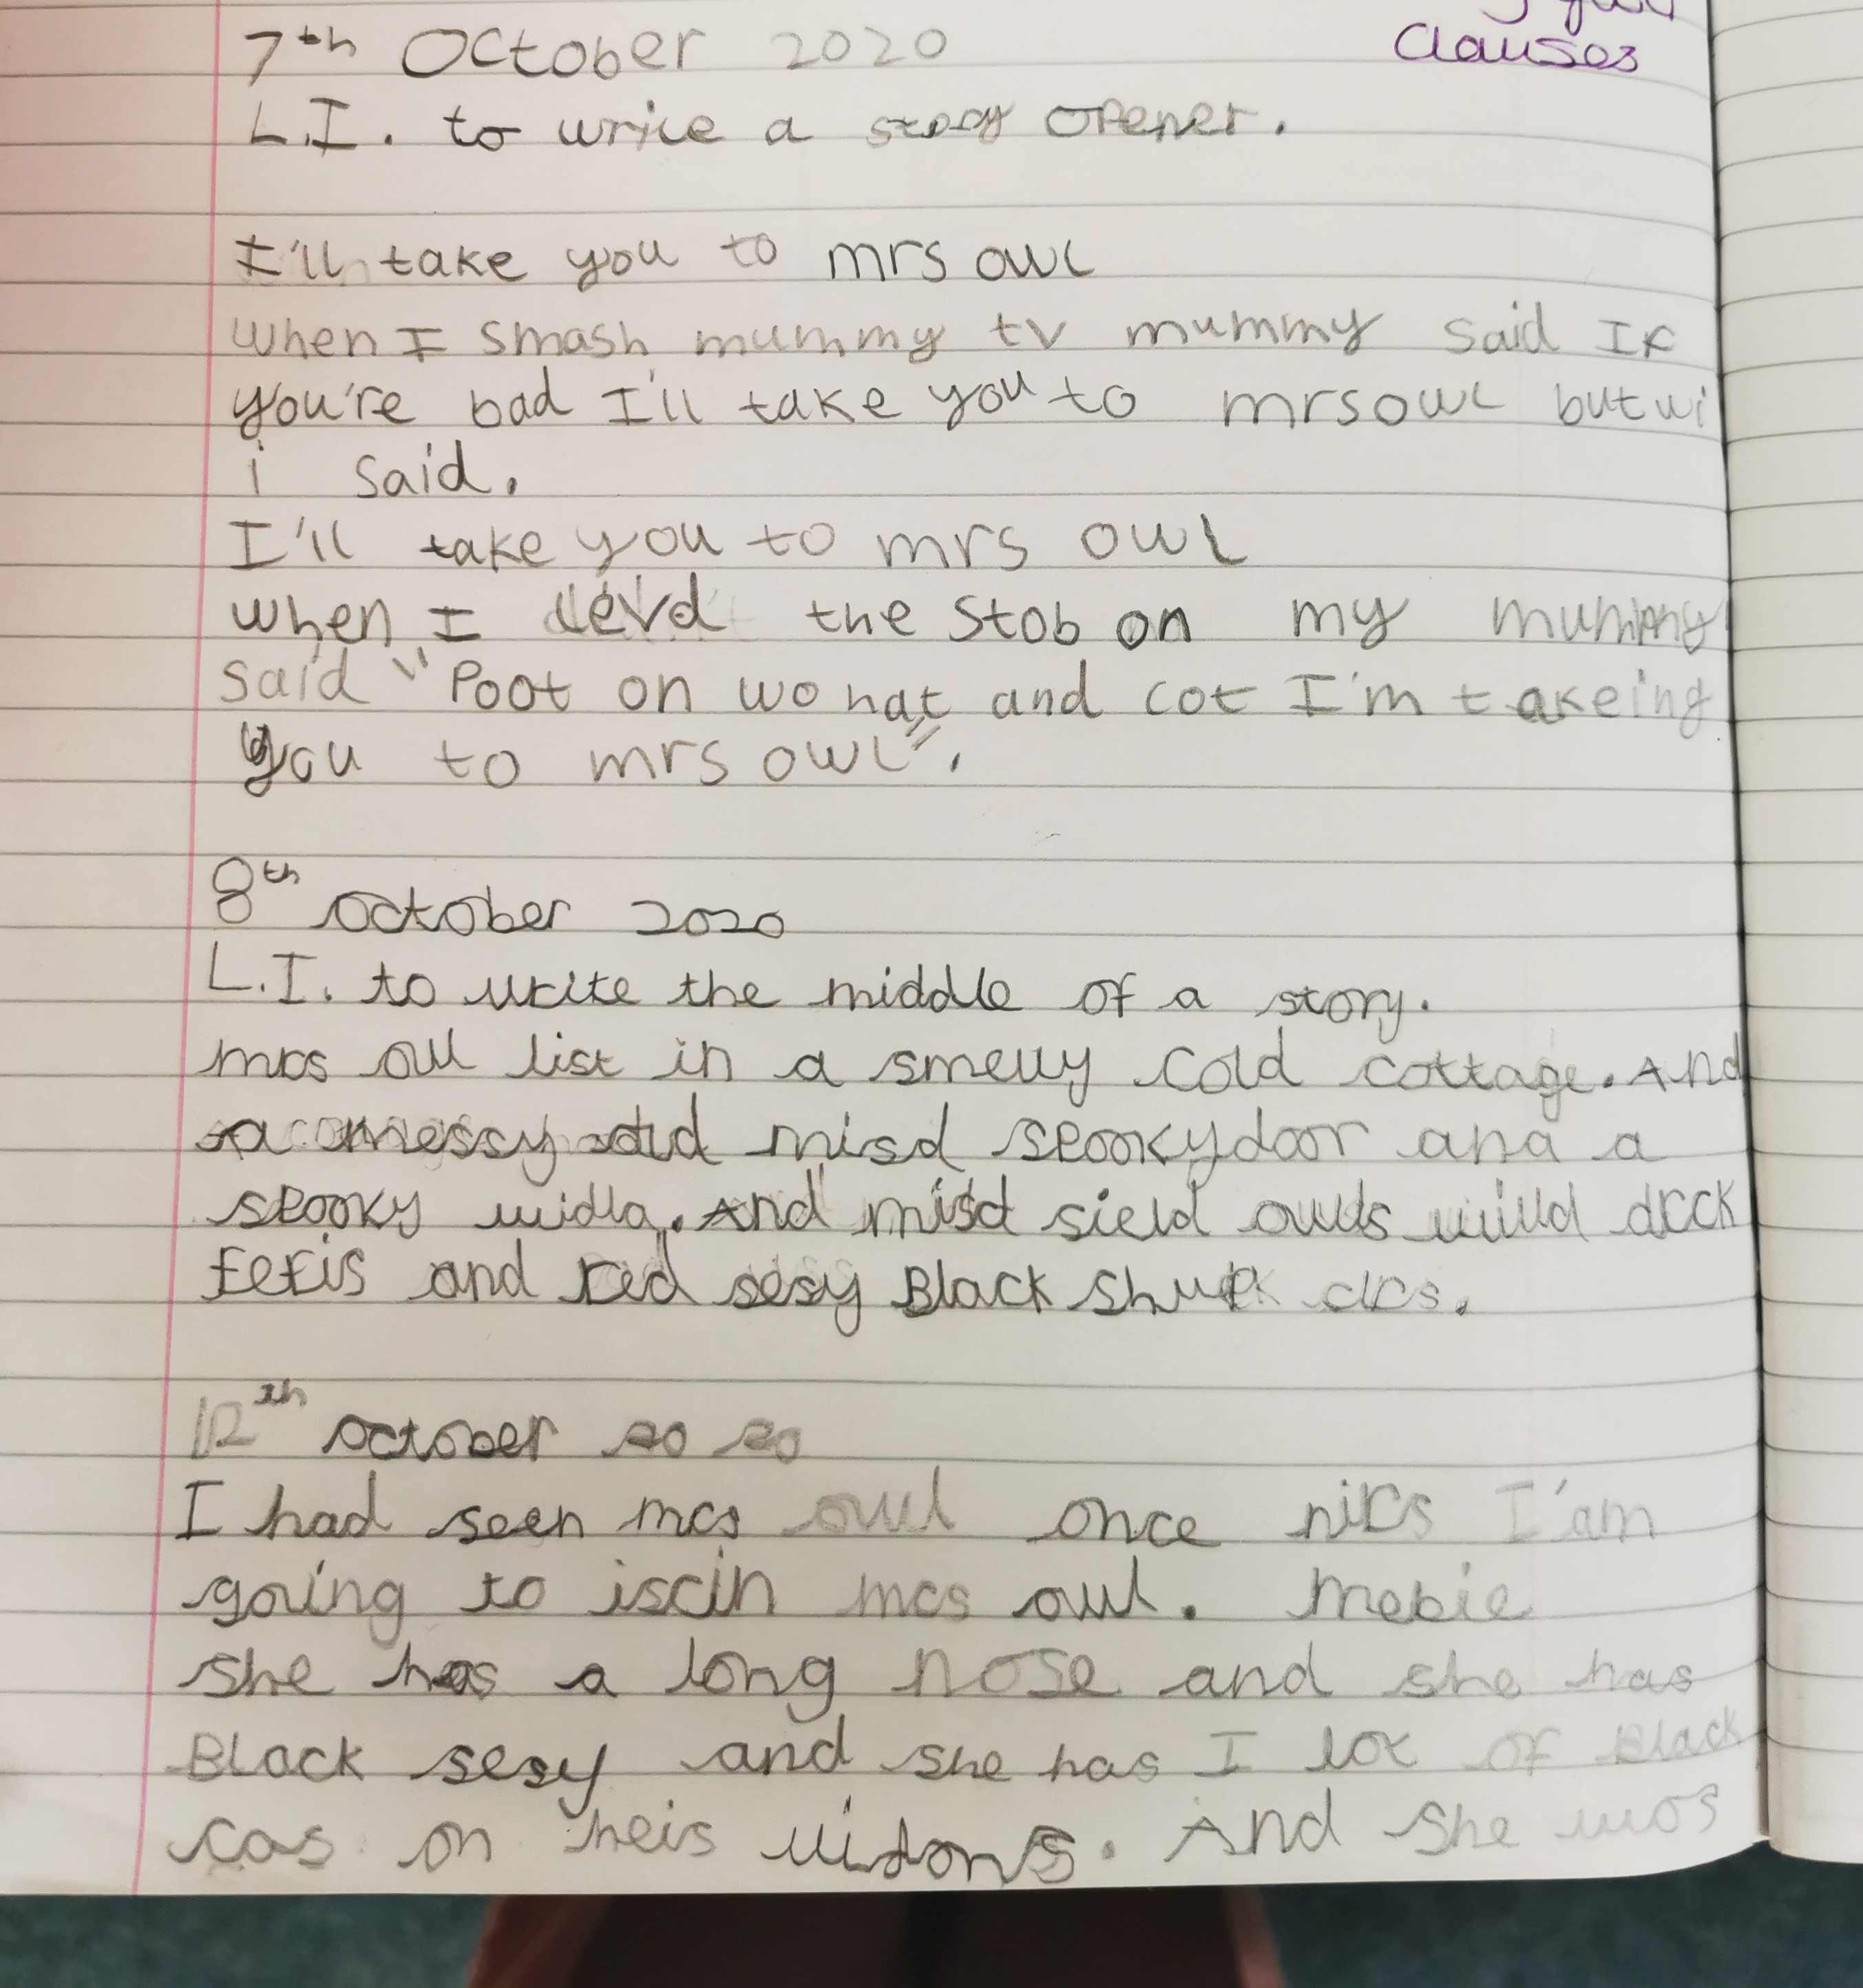 clauses
7th October 2020
L.I. to write a story opener.
I'll take you to mrs owl
when I smash mummy tv mummy said If
you're bad I'll take you to mrs owl but wi
i said.
I'll take you to mrs owl
when I levd the Stob on my mummy
said "Poot on wo hat and cot I'm takeing
you to mrs owl".
8th october 2020
L.I. to write the middle of a story.
mrs owl list in a smelly cold cottage. And
a messy old misd spooky door and a
spooky widla. And misd sield owls willd drck
feris and red sesy Black Shuck clrs.
12th october 2020
I had seen mrs owl once nirs I'am
going to iscin mrs owl. Mebie
she has a long nose and she has
Black sesy and she has I lot of Black
cas on heis widons. And she wos